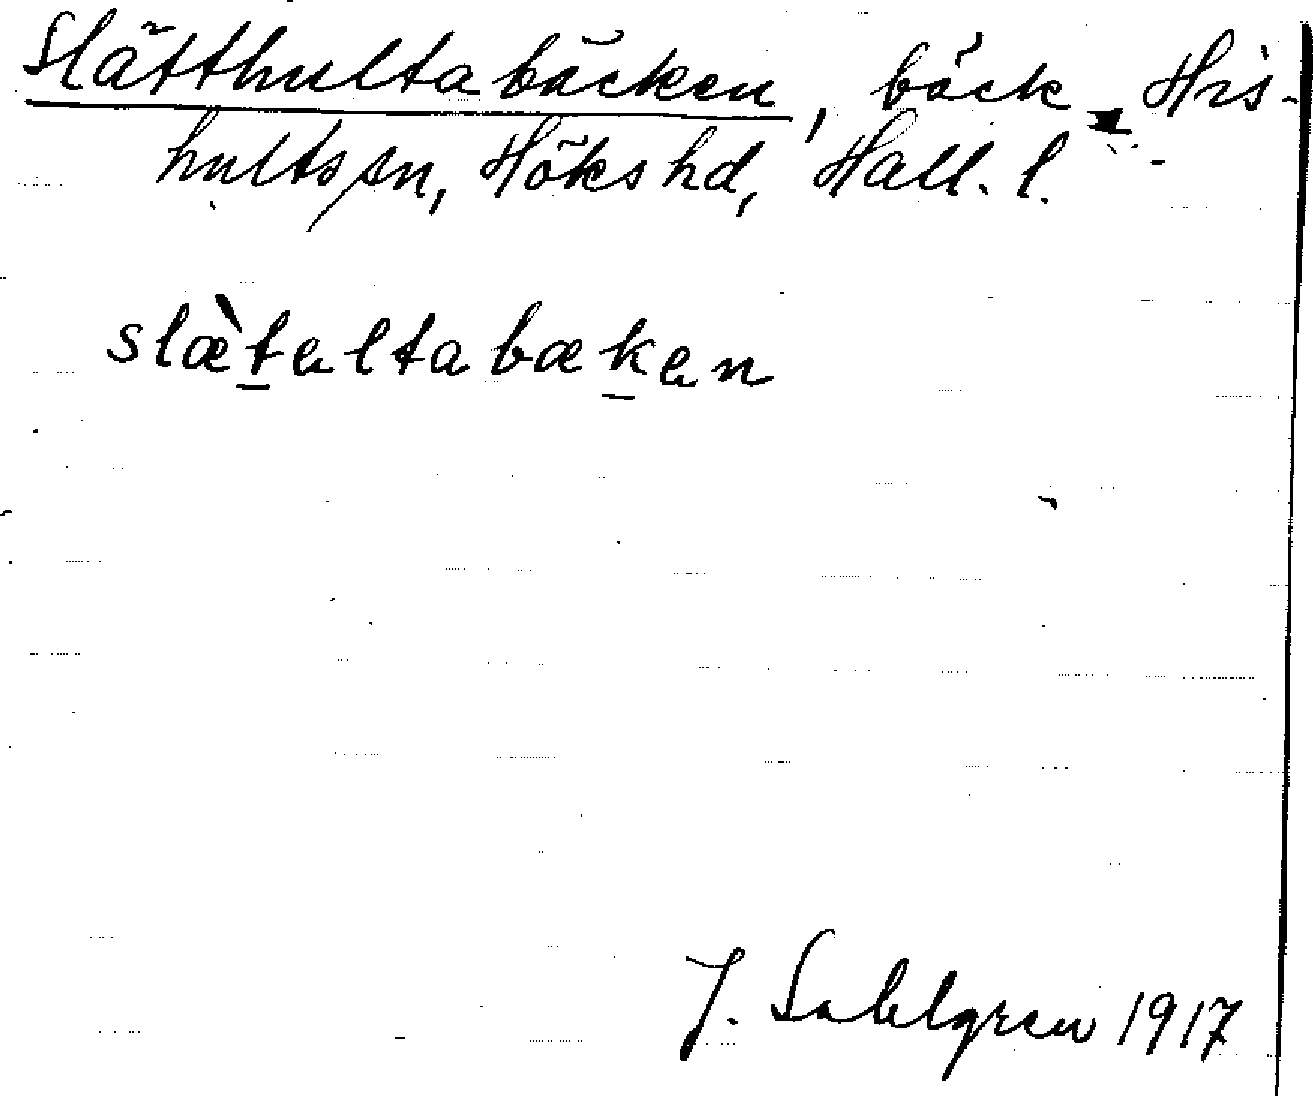 Slätthultabäcken, bäck, His-
hults sn, Höks hd, Hall. l.
slæ̀teltabæken
J. Sahlgren 1917